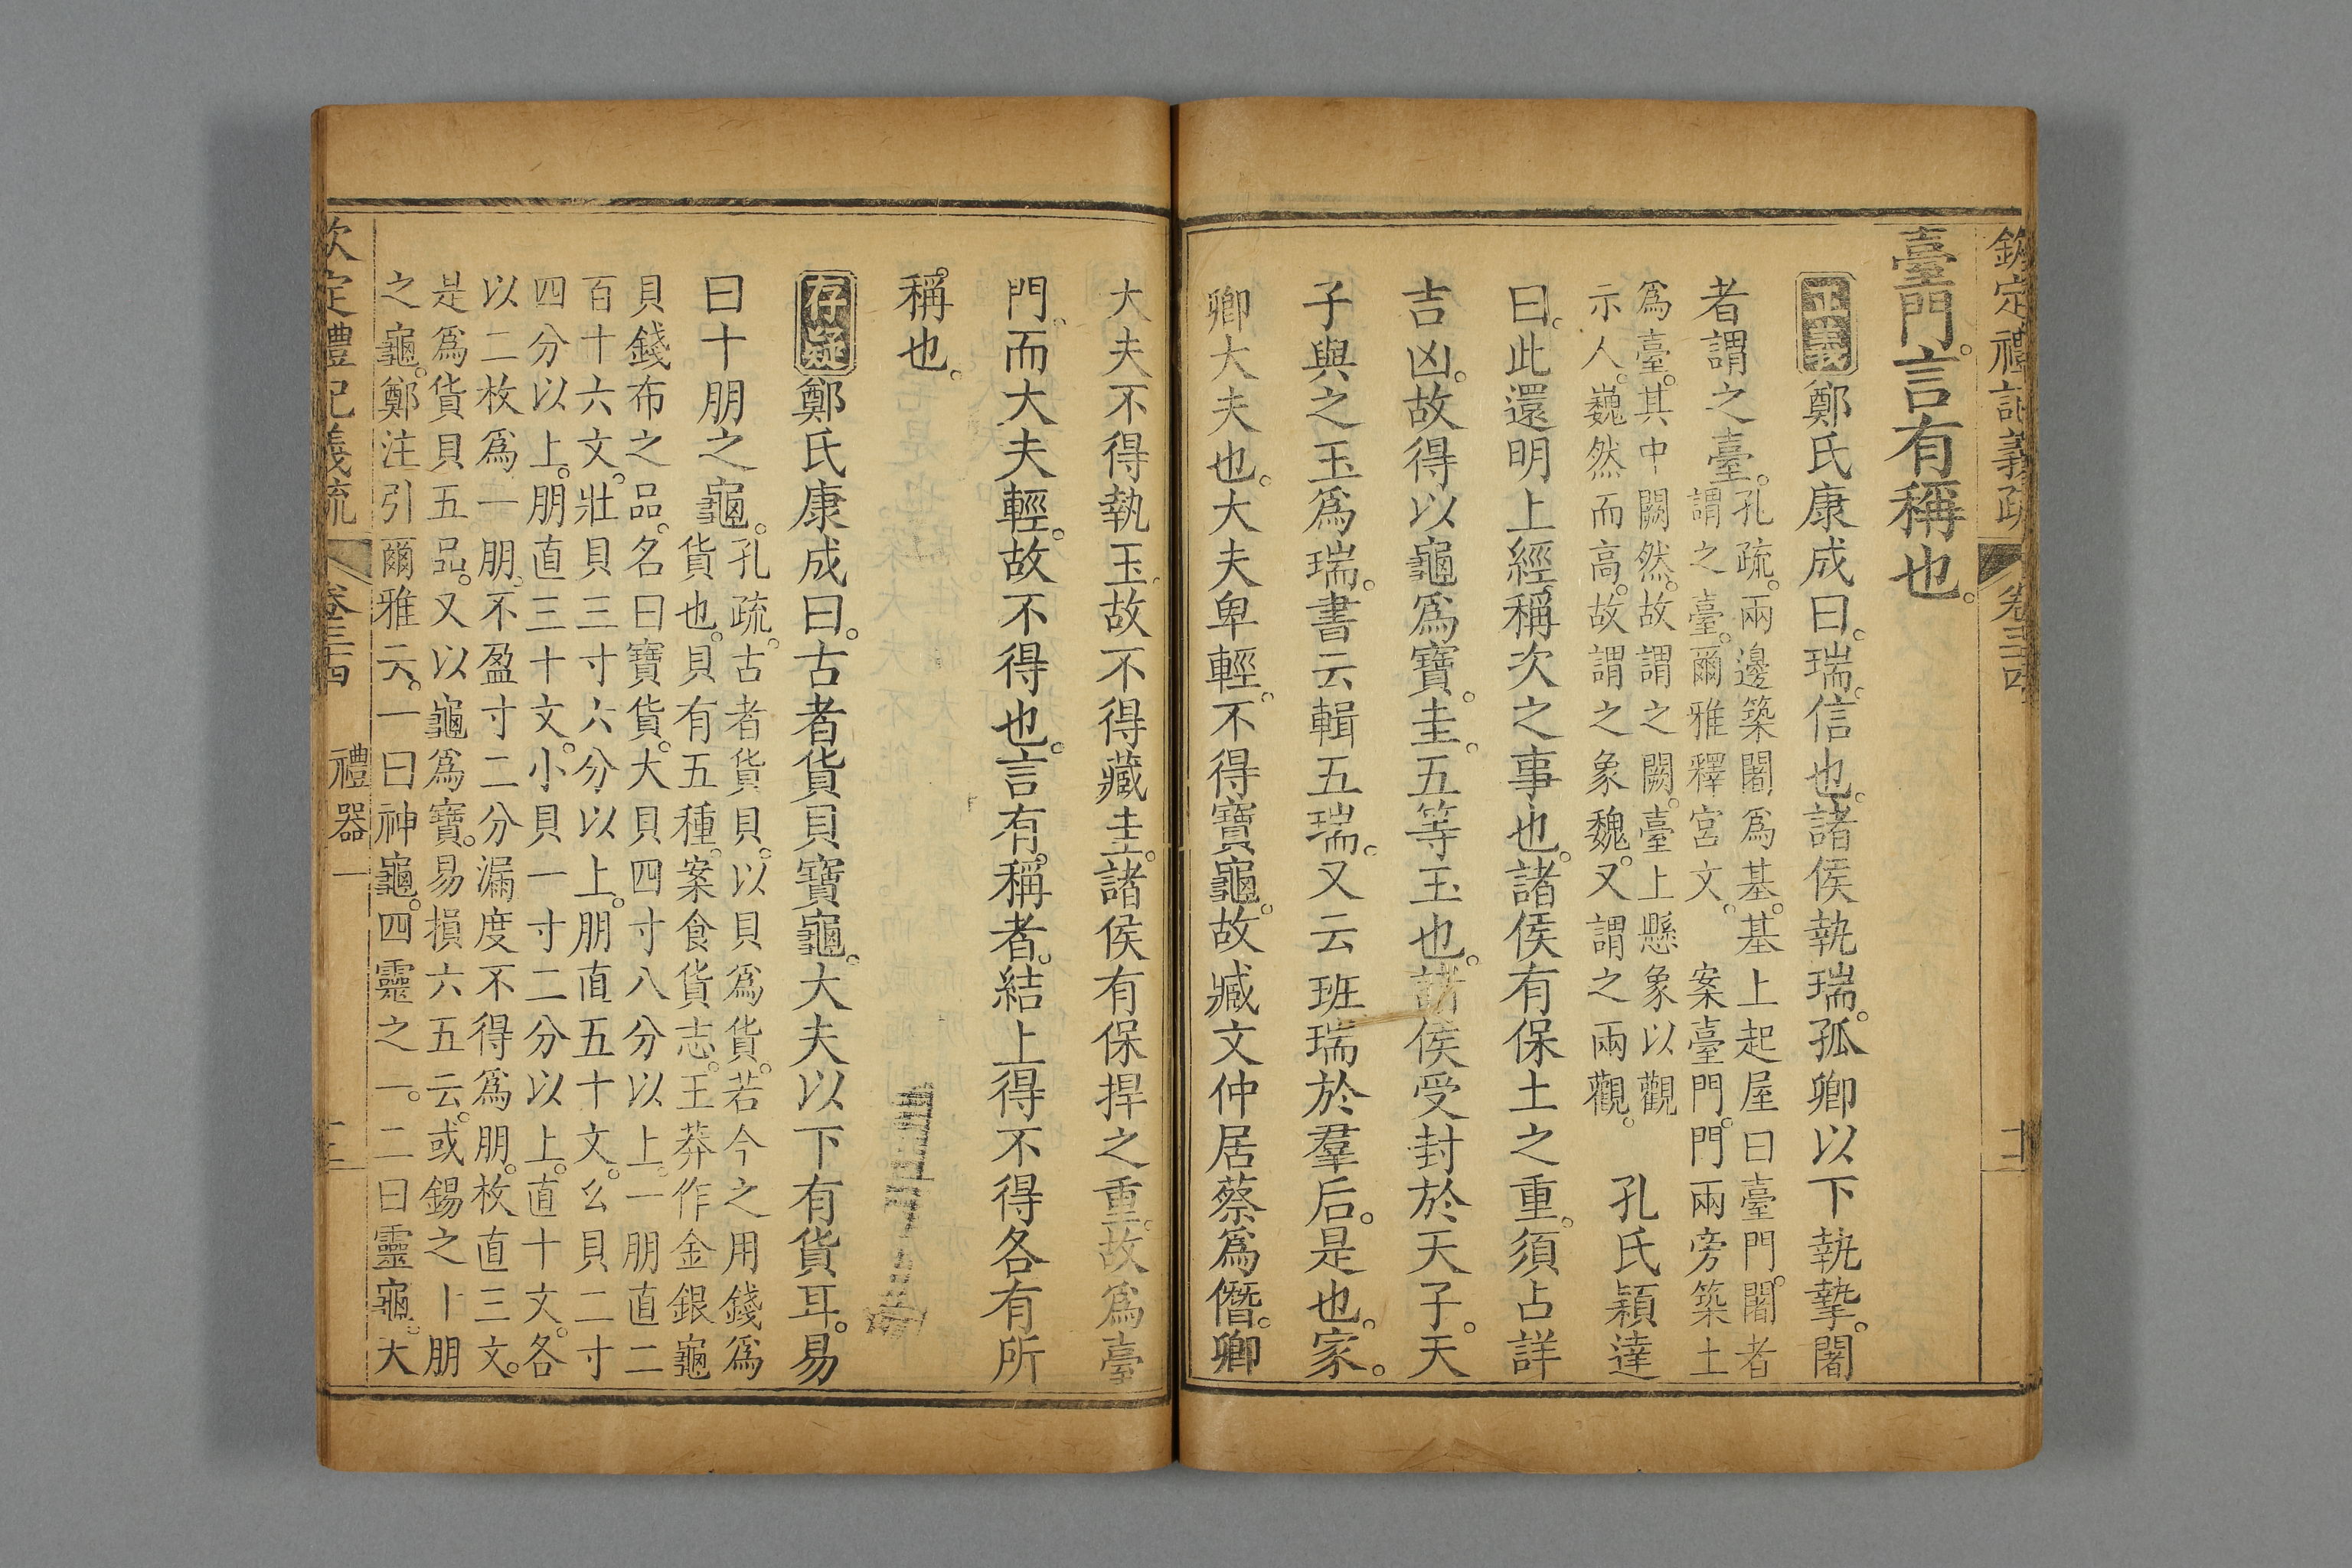 欽定禮記義疏 卷三十四
臺門。言有稱也。
正義 鄭氏康成曰。瑞。信也。諸侯執瑞。孤卿以下執摯。闍
者謂之臺。
孔疏。兩邊築闍爲基。基上起屋曰臺門。闍者
謂之臺。爾雅釋宮文。 案臺門。門兩旁築土
爲臺。其中闕然。故謂之闕。臺上懸象以觀
示人。巍然而高。故謂之象魏。又謂之兩觀。
孔氏穎達
曰。此還明上經稱次之事也。諸侯有保土之重。須占詳
吉凶。故得以龜爲寶。圭。五等玉也。諸侯受封於天子。天
子與之玉爲瑞。書云輯五瑞。又云班瑞於羣后。是也。家。
卿大夫也。大夫卑輕。不得寶龜。故臧文仲居蔡爲僭。卿
大夫不得執玉。故不得藏圭。諸侯有保捍之重。故爲臺
門。而大夫輕。故不得也。言有稱者。結上得不得各有所
稱也。
存疑 鄭氏康成曰。古者貨貝寶龜。大夫以下有貨耳。易
曰十朋之龜。
孔疏。古者貨貝。以貝爲貨。若今之用錢爲
貨也。貝有五種。案食貨志。王莽作金銀龜
貝錢布之品。名曰寶貨。大貝四寸八分以上。一朋直二
百十六文。壯貝三寸六分以上。朋直五十文。幺貝二寸
四分以上。朋直三十文。小貝一寸二分以上。直十文。各
以二枚爲一朋。不盈寸二分漏度不得爲朋。枚直三文。
是爲貨貝五品。又以龜爲寶。易損六五云。或錫之十朋
之龜。鄭注引爾雅云。一曰神龜。四靈之一。二曰靈龜。大
欽定禮記義疏 卷三十四 禮器一